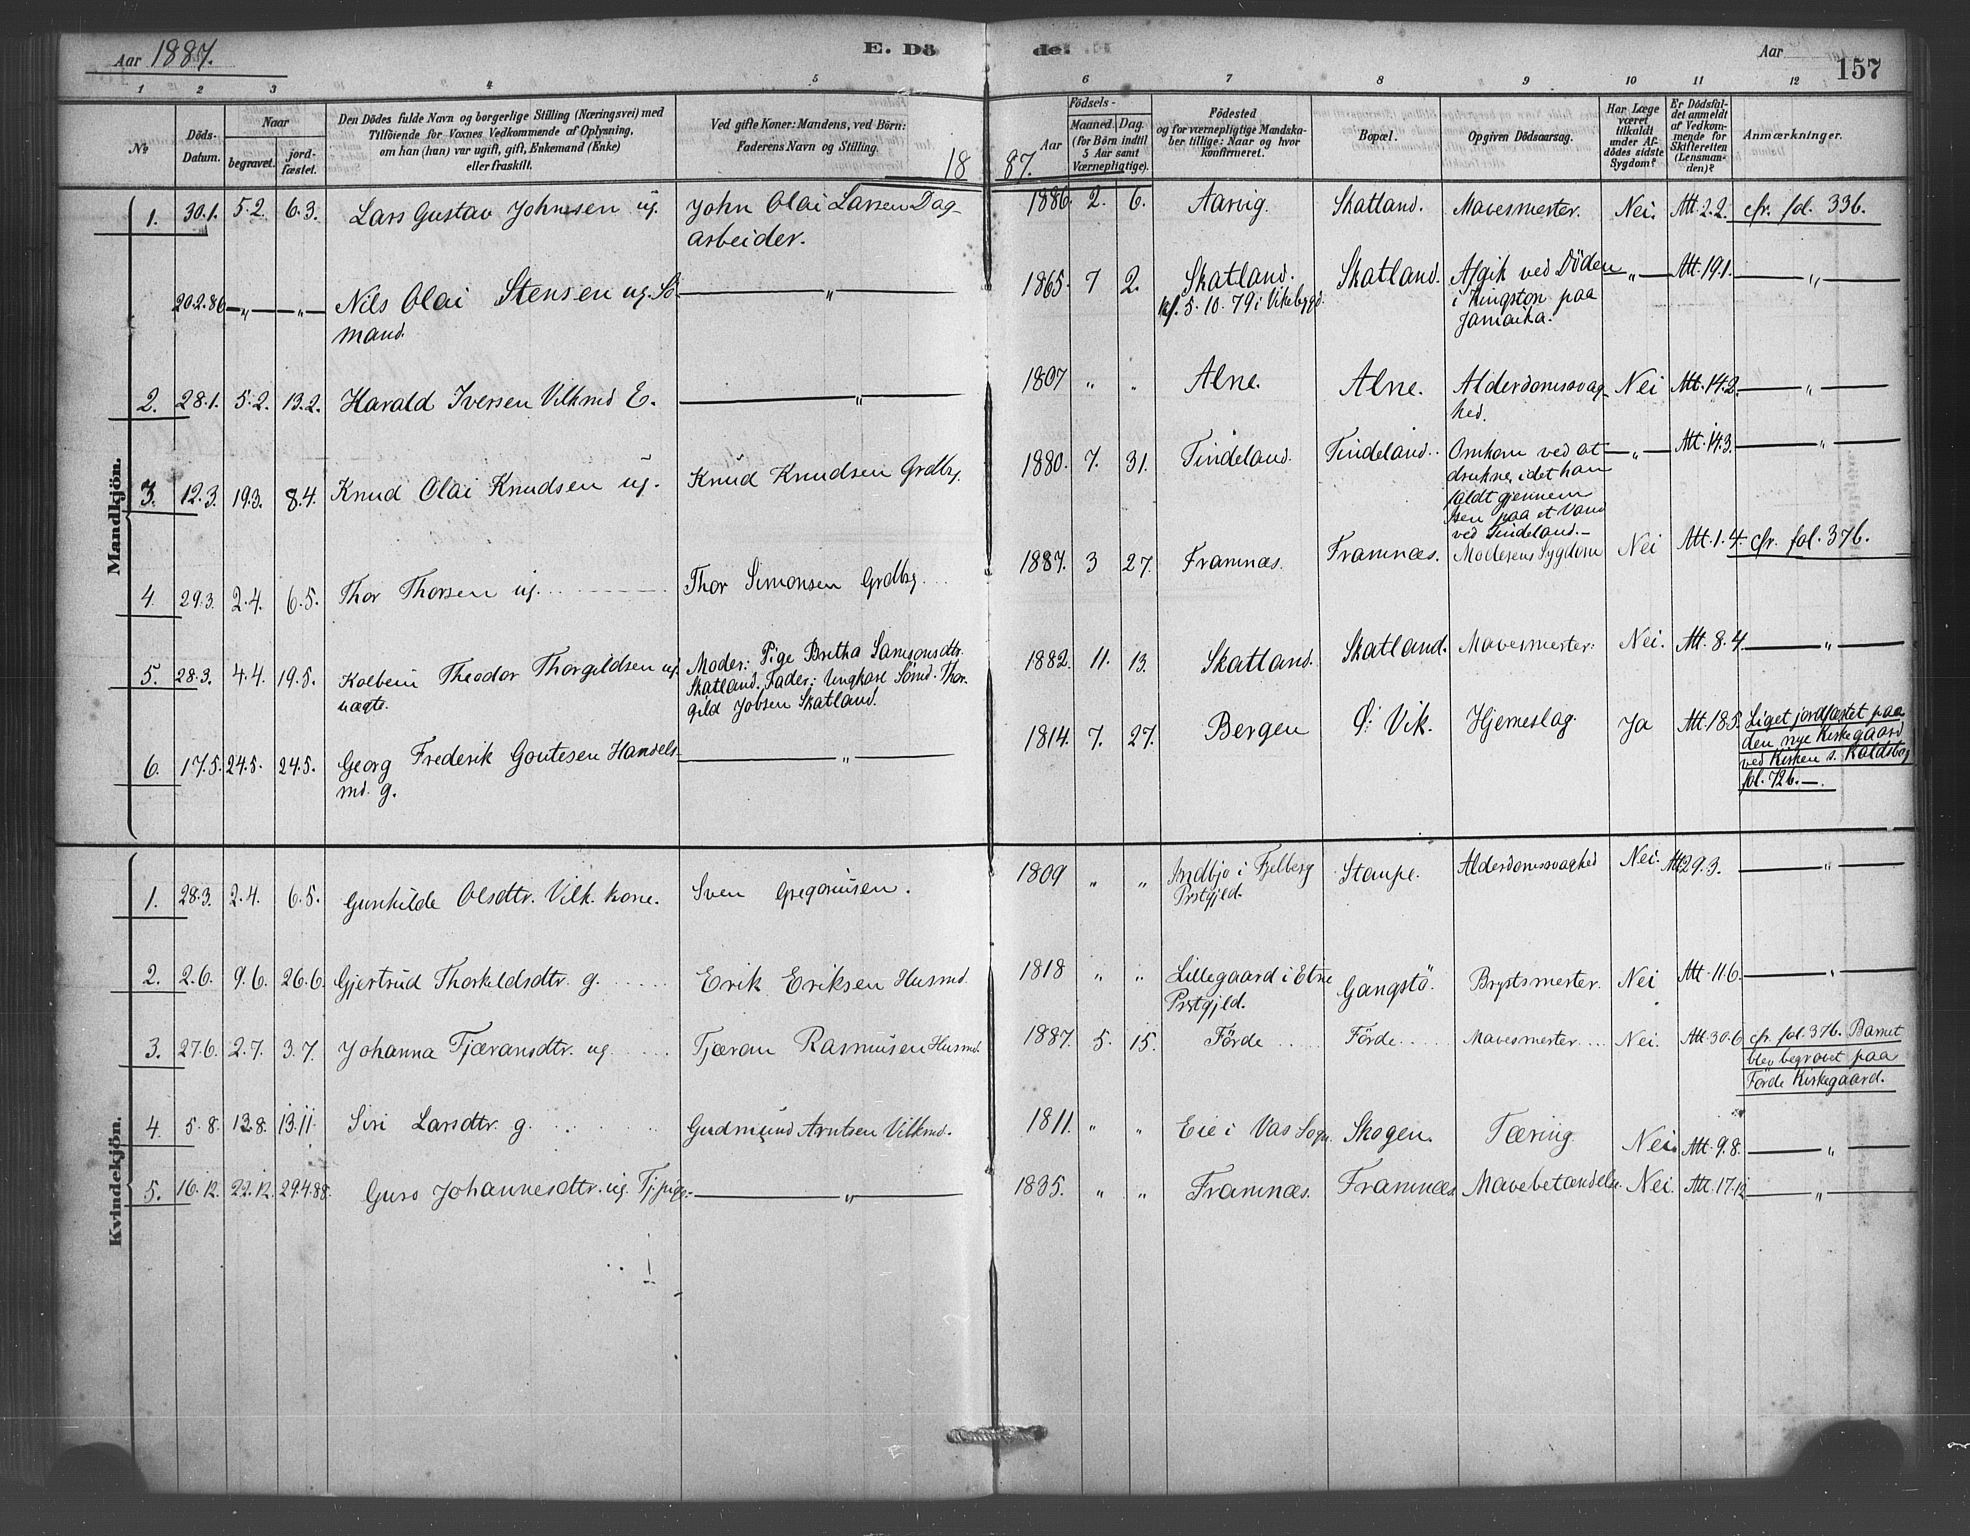 Aar 1887.
E. Dö
de.
Aar
157
1 2 3 4 5 6 7 8 9 10 11 12
No
Döds-Datum.
Naar
begravet.
jord-fæstet.
Den Dödes fulde Navn og borgerlige Stilling (Næringsvei) med
Tilföiende for Voxnes Vedkommende af Oplysning,
om han (hun) var ugift, gift, Enkemand (Enke)
eller fraskilt.
Ved gifte Koner: Mandens, ved Börn:
Faderens Navn og Stilling.
Födsels-
Aar
Maaned. Dag.
(for Börn indtil
5 Aar samt
Værnepligtige).
Födested
og for værnepligtige Mandska-
ber tillige: Naar og hvor
konfirmeret.
Bopæl.
Opgiven Dödsaarsag.
Har Læge
været
tilkaldt
under Af-
dödes sidste
Sygdom?
Er Dödsfal-
det anmeldt
af Vedkom-
mende for
Skifteretten
(Lensman-
den)?
Anmærkninger.
1887.
Mandkjön.
1. 30.1. 5.2. 6.3. Lars Gustav Johnsen ug. John Olai Larsen Dag- 1886. 2. 6. Aarvig. Skatland. Mavesmerter. Nei. Att. 2.2. cfr. fol. 336.
arbeider.
20.2.86 — „ — — „ — Nils Olai Stensen ug. Sö- — „ — 1865. 7 2. Skatland. Skatland. Afgik ved Döden — „ — Att. 19.1. — „ —
mand. kf. 5.10.79 i Vikebygd. i Kingston paa
Jamaika.
2. 28.1. 5.2. 13.2. Harald Iversen Vilkmd E. — „ — 1807 „ „ Alne. Alne. Alderdomssvag- Nei Att. 14.2. — „ —
hed.
3. 12.3. 19.3. 8.4. Knud Olai Knudsen ug. Knud Knudsen Grdbg. 1880. 7. 31. Tindeland. Tindeland. Omkom ved at — „ — Att. 14.3. — „ —
drukne, idet han
faldt gjennem
Isen paa et Vand
ved Tindeland.—
4. 29.3. 2.4. 6.5. Thor Thorsen ug. Thor Simonsen Grdbg. 1887. 3 27. Framnæs. Framnæs. Moderens Sygdom Nei Att. 1.4. cfr. fol. 376.
5. 28.3. 4.4. 19.5. Kolbein Theodor Thorgildsen ug. Moder: Pige Britha Samsonsdtr. 1882. 11. 13. Skatland. Skatland. Mavesmerter. Nei. Att. 8.4. — „ —
uægte. Skatland. Fader: Ungkarl Sömd. Thor-
gild Jobsen Skatland.
6. 17.5. 24.5. 24.5. Georg Frederik Gontesen Handels- — „ — 1814. 7. 27. Bergen Ø: Vik. Hjerneslag. Ja Att. 18.5. Liget jordfæstet paa
md. g. den nye Kirkegaard
ved Kirken s. Kaldsbog
fol. 726.—
Kvindekjön.
1. 28.3. 2.4. 6.5. Gunhilde Olsdtr. Vilk. kone. Sven Gregoriusen. 1809 „ „ Indbjo i Fjelberg Staupe. Alderdomssvaghed Nei. Att. 29.3. — „ —
Prstgjld.
2. 2.6. 9.6. 26.6. Gjertrud Thorkildsdtr. g. Erik Eriksen Husmd. 1818 „ „ Lillegaard i Etne Gangstö. Brystsmerter. Nei Att. 11.6. — „ —
Prstgjld.
3. 27.6. 2.7. 3.7. Johanna Tjæransdtr. ug. Tjæran Rasmusen Husmd. 1887. 5. 15. Förde Förde Mavesmerter Nei. Att. 30.6 cfr. fol. 376. Barnet
blev begravet paa
Förde Kirkegaard.
4. 5.8. 13.8. 13.11. Siri Larsdtr. g. Gudmund Arntsen Vilkmd. 1811. „ „ Eie i Vas Sogn. Skogen. Tæring. Nei. Att. 9.8. — „ —
5. 16.12. 22.12. 29.4.88. Guro Johannesdtr. ug. Tj.pige. — „ — 1835. „ „ Framnæs. Framnæs. Mavebetændelse. Nei. Att. 17.12. — „ —